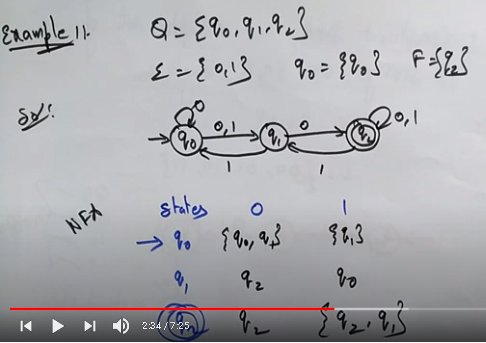 Example 11. Q = {q₀, q₁, q₂}
Σ = {0,1} q₀ = {q₀} F = {q₂}
Sol:
0 0,1
q₀ 0,1 q₁ 0 q₂
1 1
NFA states 0 1
→ q₀ {q₀, q₁} {q₁}
q₁ q₂ q₀
q₂ q₂ {q₂, q₁}
2:34 / 7:25